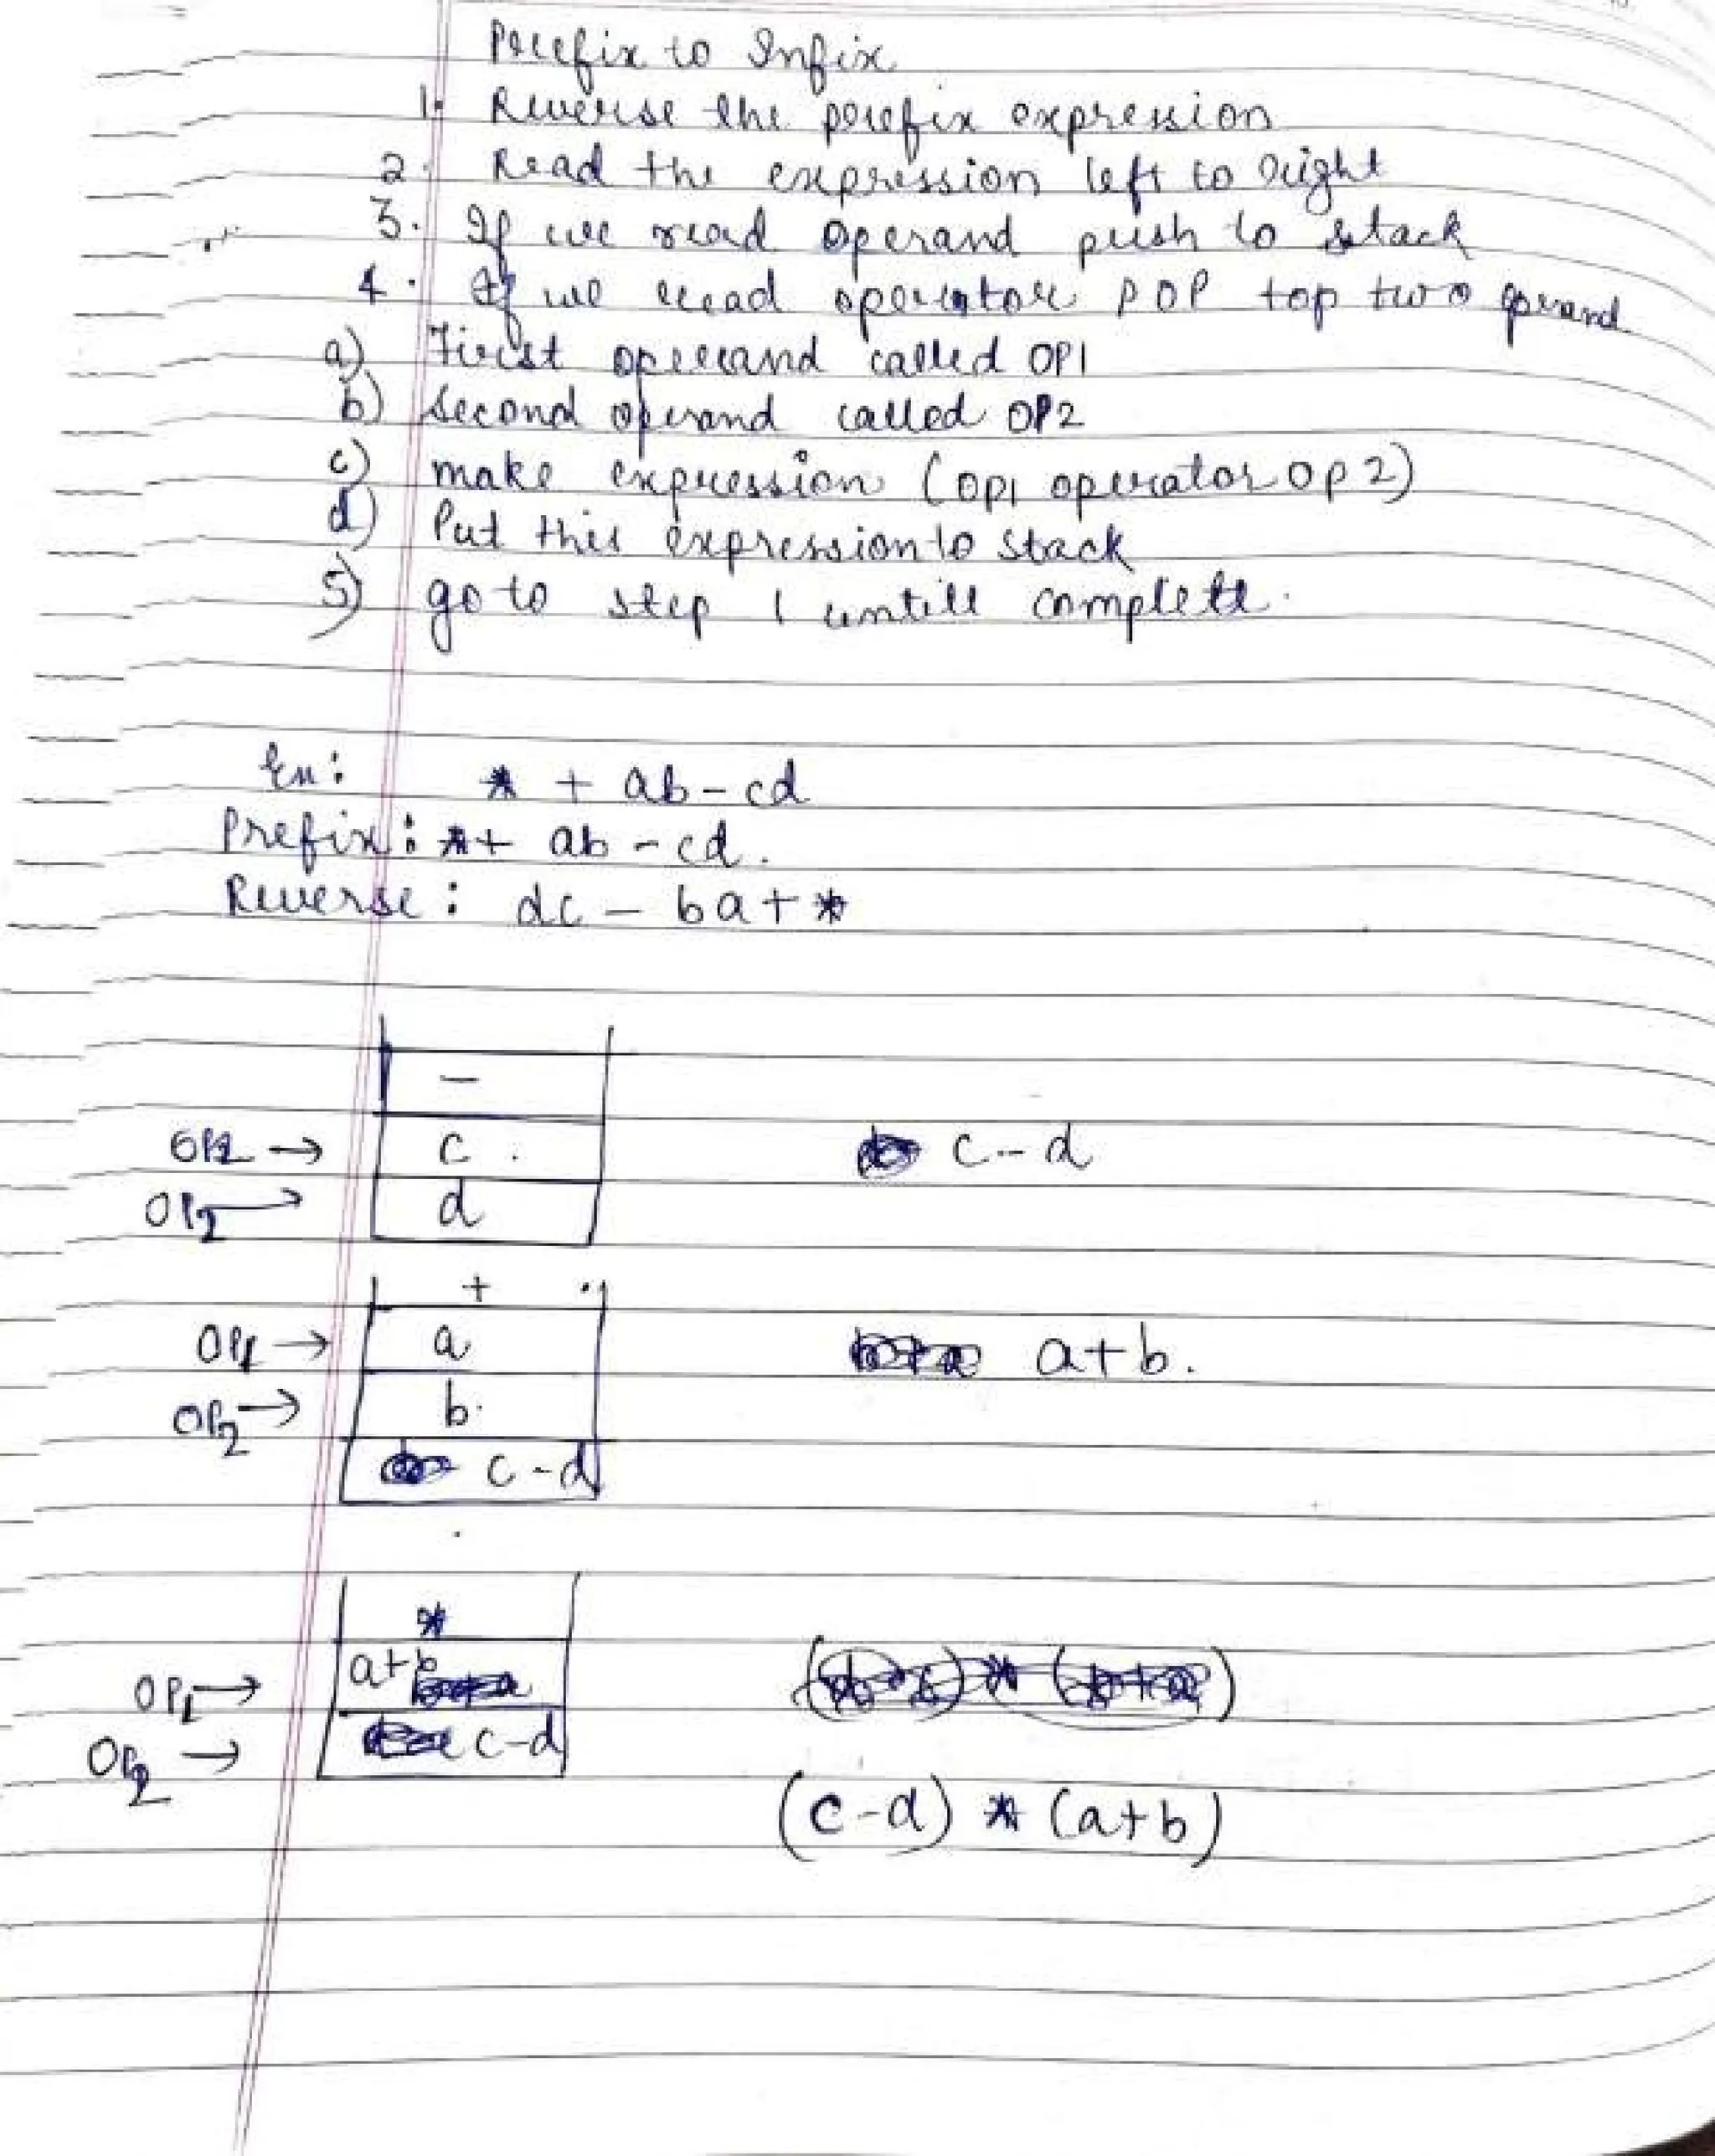 Prefix to Infix
1. Reverse the prefix expression
2. Read the expression left to right
3. If we read operand push to stack
4. If we read operator POP top two oprand
a) First operand called OP1
b) Second operand called OP2
c) make expression (op1 operator op2)
d) Put this expression to stack
5) go to step 1 untill complete.
Ex: * + ab-cd
Prefix: *+ ab -cd.
Reverse: dc - ba+*
-
→ c c-d
OP2 → d
+
OP1 → a a+b.
OP2 → b
c-d
*
OP1 → a+b
OP2 → c-d
(c-d) * (a+b)